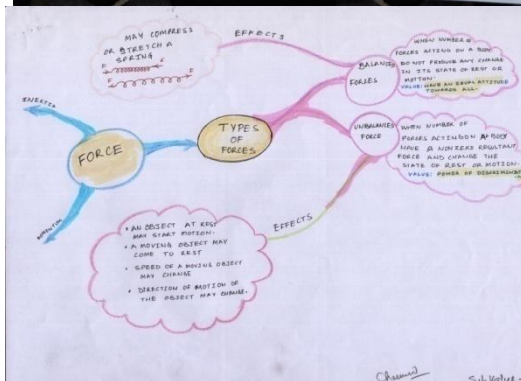 MAY COMPRESS
OR STRETCH A
SPRING
F F
F F
EFFECTS
BALANCED
FORCES
WHEN NUMBER OF
FORCES ACTING ON A BODY
DO NOT PRODUCE ANY CHANGE
IN ITS STATE OF REST OR
MOTION.
VALUE: HAVE AN EQUAL ATTITUDE
TOWARDS ALL.
INERTIA
FORCE
TYPES
OF
FORCES
UNBALANCED
FORCE
WHEN NUMBER OF
FORCES ACTING ON A BODY
HAVE A NONZERO RESULTANT
FORCE AND CHANGE THE
STATE OF REST OR MOTION.
VALUE: POWER OF
EFFECTS
• AN OBJECT AT REST
MAY START MOTION.
• A MOVING OBJECT MAY
COME TO REST
• SPEED OF A MOVING OBJECT
MAY CHANGE
• DIRECTION OF MOTION OF
THE OBJECT MAY CHANGE.